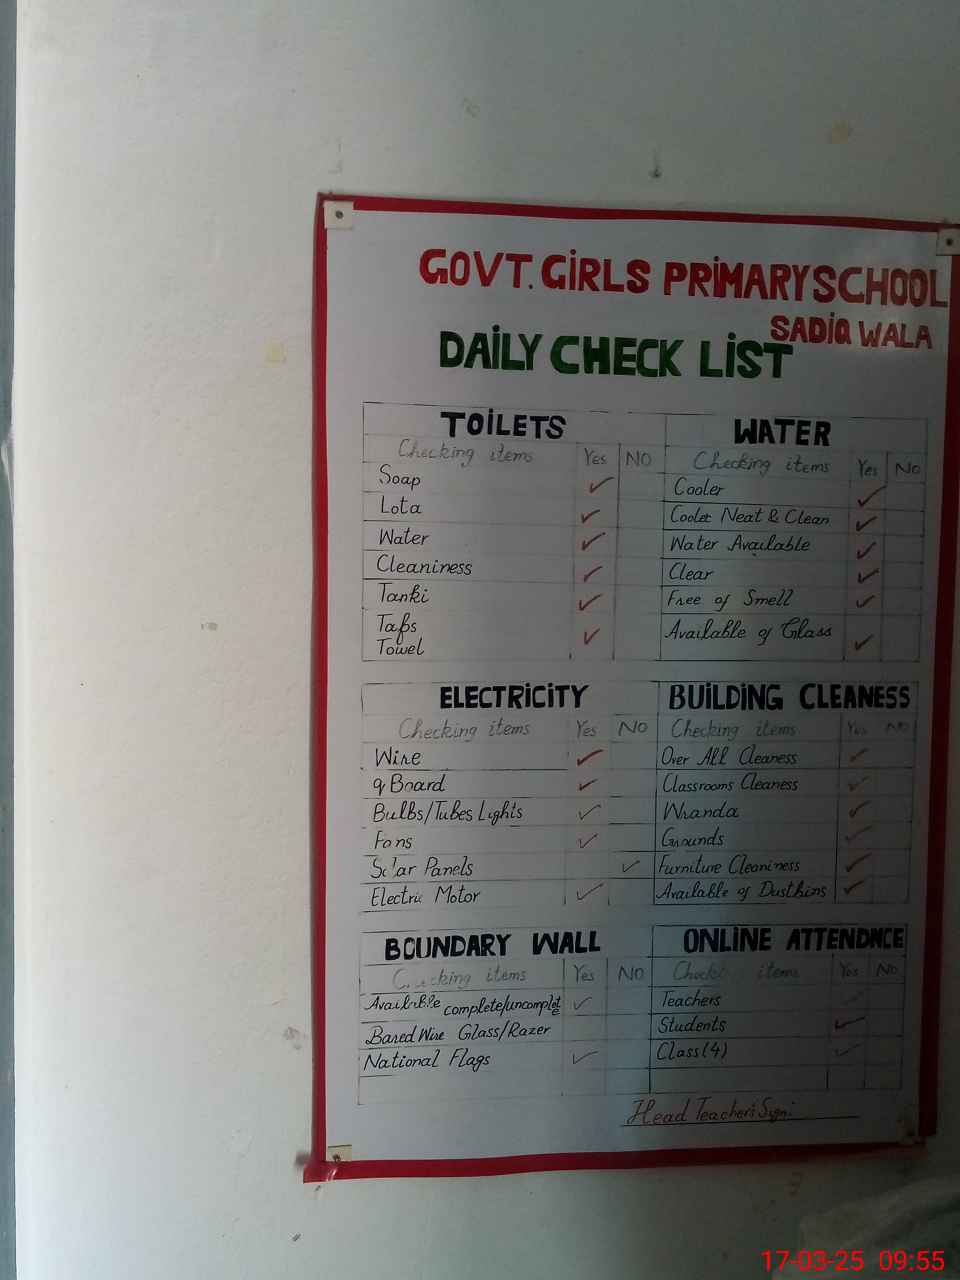 GOVT. GiRLS PRiMARY SCHOOL
SADiQ WALA
DAiLY CHECK LiST
TOiLETS
Checking items Yes NO
Soap ✓
Lota ✓
Water ✓
Cleaniness ✓
Tanki ✓
Taps
Towel ✓
WATER
Checking items Yes No
Cooler ✓
Cooler Neat & Clean ✓
Water Available ✓
Clear ✓
Free of Smell ✓
Available of Glass ✓
ELECTRiCiTY
Checking items Yes No
Wire ✓
Board ✓
Bulbs/Tubes Lights ✓
Fans ✓
Solar Panels ✓
Electric Motor ✓
BUiLDiNG CLEANESS
Checking items Yes No
Over All Cleaness ✓
Classrooms Cleaness ✓
Wranda ✓
Grounds ✓
Furniture Cleaniness ✓
Available of Dustbins ✓
BOUNDARY WALL
Checking items Yes NO
Available complete/uncomplete ✓
Bared Wire Glass/Razer
National Flags ✓
ONLiNE ATTENDNCE
Checking items Yes No
Teachers
Students ✓
Class(4) ✓
Head Teacher's Sign:
17-03-25 09:55